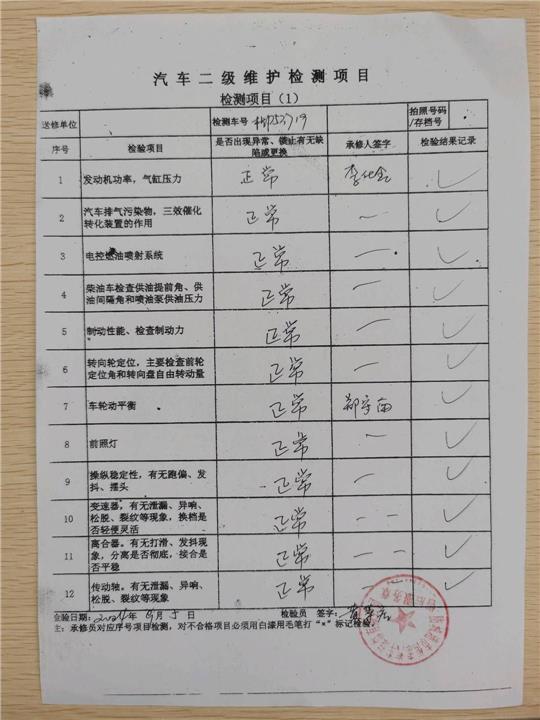 汽车二级维护检测项目
检测项目（1）
送修单位 检测车号 拍照号码/存档号
序号 检验项目 是否出现异常、锁止有无缺陷或更换 承修人签字 检验结果记录
1 发动机功率，气缸压力 正常 ✓
2 汽车排气污染物，三效催化转化装置的作用 正常 — ✓
3 电控燃油喷射系统 正常 — ✓
4 柴油车检查供油提前角、供油间隔角和喷油泵供油压力 正常 — ✓
5 制动性能、检查制动力 正常 — ✓
6 转向轮定位，主要检查前轮定位角和转向盘自由转动量 正常 — ✓
7 车轮动平衡 正常 ✓
8 前照灯 正常 — ✓
9 操纵稳定性，有无跑偏、发抖、摆头 正常 — ✓
10 变速器，有无泄漏、异响、松脱、裂纹等现象，换档是否轻便灵活 正常 — — ✓
11 离合器。有无打滑、发抖现象，分离是否彻底，接合是否平稳 正常 — — ✓
12 传动轴。有无泄漏、异响、松脱、裂纹等现象 正常 — ✓
检验日期： 年 月 5 日 检验员 签字：
注：承修员对应序号项目检测，对不合格项目必须用白漆用毛笔打“*”标记检验。